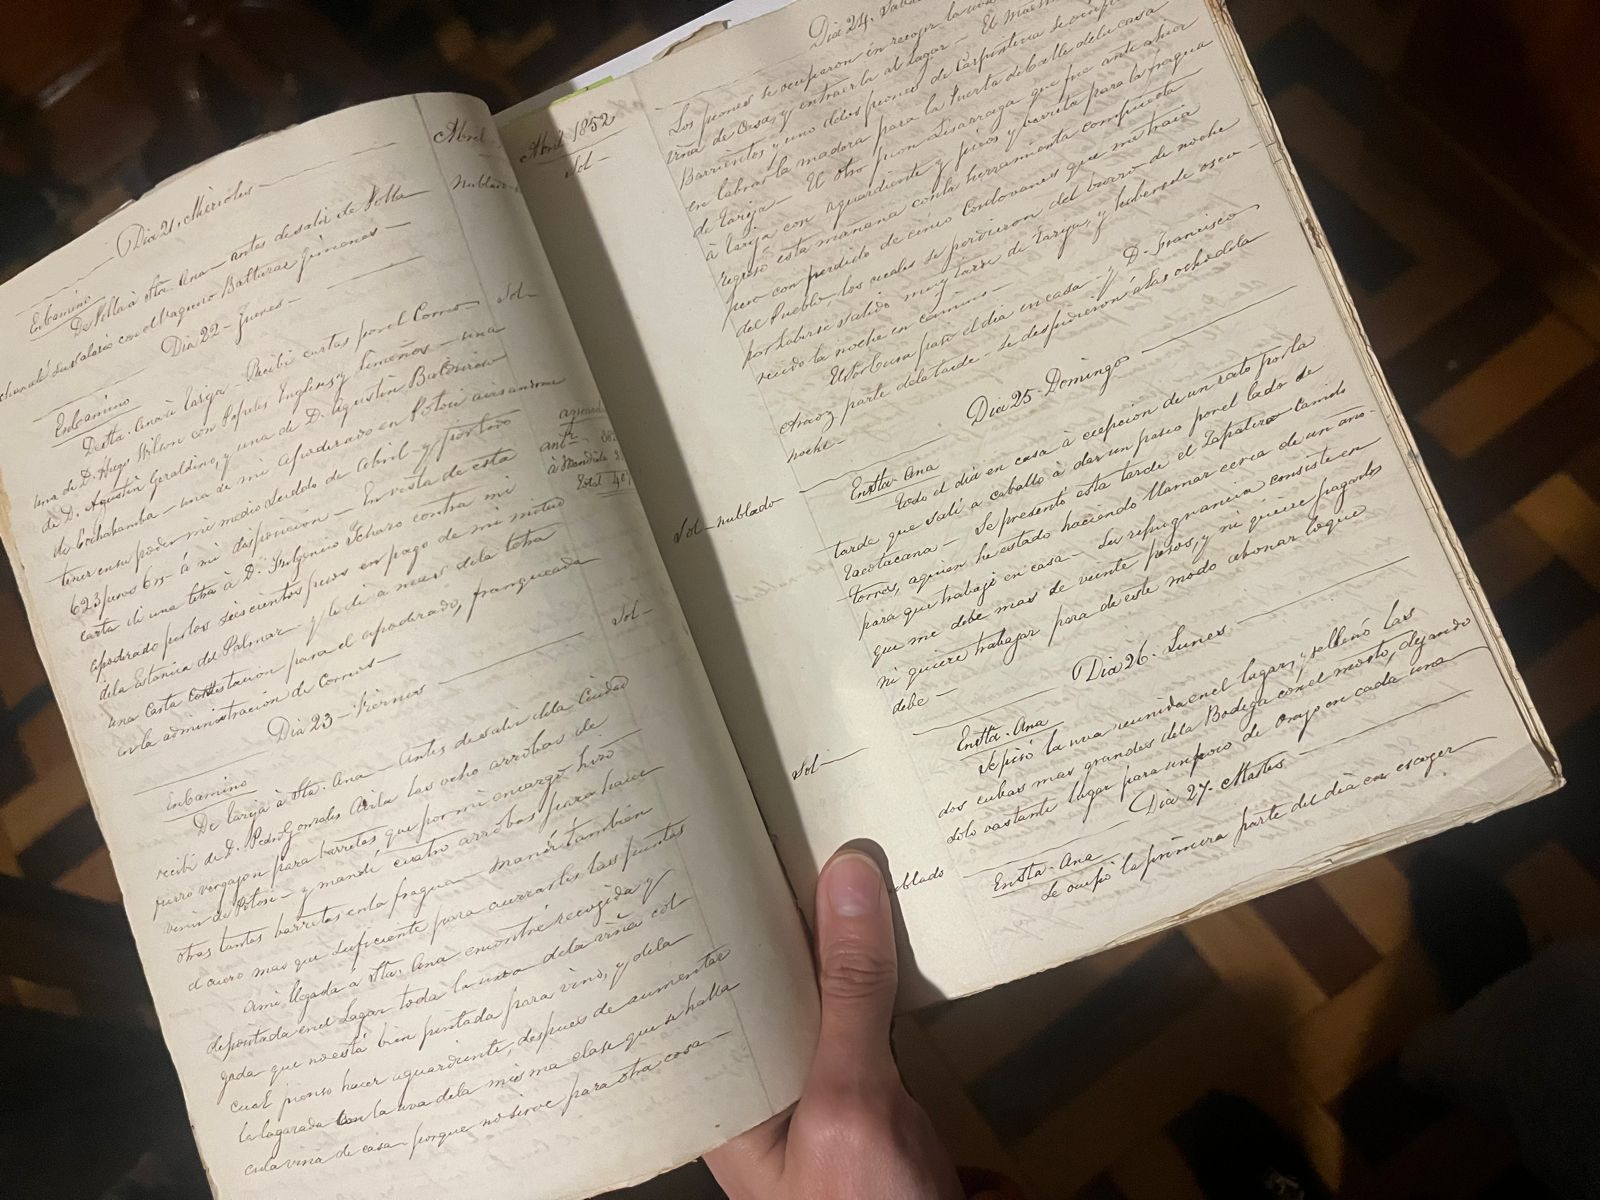 Abril
Dia 21. Miercoles
Nublado
En camino
De Tolla à Sta. Ana — antes de salir de Tolla
su salario con el vaquero Baltazar Jimenes —
Dia 22 — Jueves —
Sol —
En camino
De Sta. Ana à Tarija — Recibi cartas por el Correo
una de D. Hugo Wilson con papeles Ingleses y Limeños — una
de D. Agustin Geraldino, y una de D. Agustin Baldivieso
de Cochabamba — una de mi apoderado en Potosi avisandome
tener en su poder mi medio sueldo de Abril y
623 pesos 6 rs à mi disposicion — En vista de esta
carta di una letra à D. Fulgencio contra mi
apoderado por los seiscientos pesos en pago de mi mitad
de la Estancia del Palmar — y le di à mas de la letra
una carta contestacion para el apoderado, franqueada
en la administracion de Correos —
Total
Dia 23 — Viernes
Sol —
En camino
De Tarija à Sta. Ana — Antes de salir de la Ciudad
recibi de D. Pedro Gonzales Avila las ocho arrobas de
fierro vergajon para barretas que por mi encargo hizo
venir de Potosi — y mandé cuatro arrobas para hacer
otras tantas barretas en la fragua — mandé tambien
el acero mas que suficiente para acerarles las puntas
A mi llegada à Sta. Ana encontré recogida y
depositada en el Lagar toda la uva de la viña col-
gada que no está bien pintada para vino, y de la
cual pienso hacer aguardiente, despues de aumentar
la lagarada con la uva de la misma clase que se halla
en la viña de casa porque no sirve para otra cosa —
Abril 1852
Sol —
Dia 24.
Los peones se ocuparon en recoger la uva
viña de Casa, y entrarla al lagar — El maestro
Barrientos y uno de los peones de Carpinteria se
en labrar la madera para la Puerta de calle de la casa
de Tarija — El otro peon Lisarraga que fue ante ahier
à Tarija con aguardiente y fierro y barreta para la fragua
regresó esta mañana con la herramienta compuesta
pero con perdida de cinco Cordovanes que me traia
del Pueblo, los cuales se perdieron del burro — de noche
por haberse salido muy tarde de Tarija, y haberse oscu-
recido la noche en camino —
El pasó el dia en casa — y D. Francisco
Araoz parte de la tarde — se despidieron à las ocho de la
noche —
Dia 25 — Domingo
Sol — nublado
En Sta. Ana
Todo el dia en casa à excepcion de un rato por la
tarde que salí a caballo à dar un paseo por el lado de
Tacotacana — Se presentó esta tarde el Zapatero Camilo
Torres, a quien he estado haciendo llamar cerca de un año
para que trabaje en casa — Su repugnancia consiste en
que me debe mas de veinte pesos, y ni quiere pagarlos
ni quiere trabajar para de este modo abonar lo que
debe —
Dia 26. Lunes
Sol —
En Sta. Ana
Se pisó la uva reunida en el lagar, y se llenó las
dos cubas mas grandes de la Bodega con el mosto, dejando
solo bastante lugar para un poco de en cada una
Dia 27. Martes
nublado
En Sta. Ana
Se ocupó la primera parte del dia en escoger